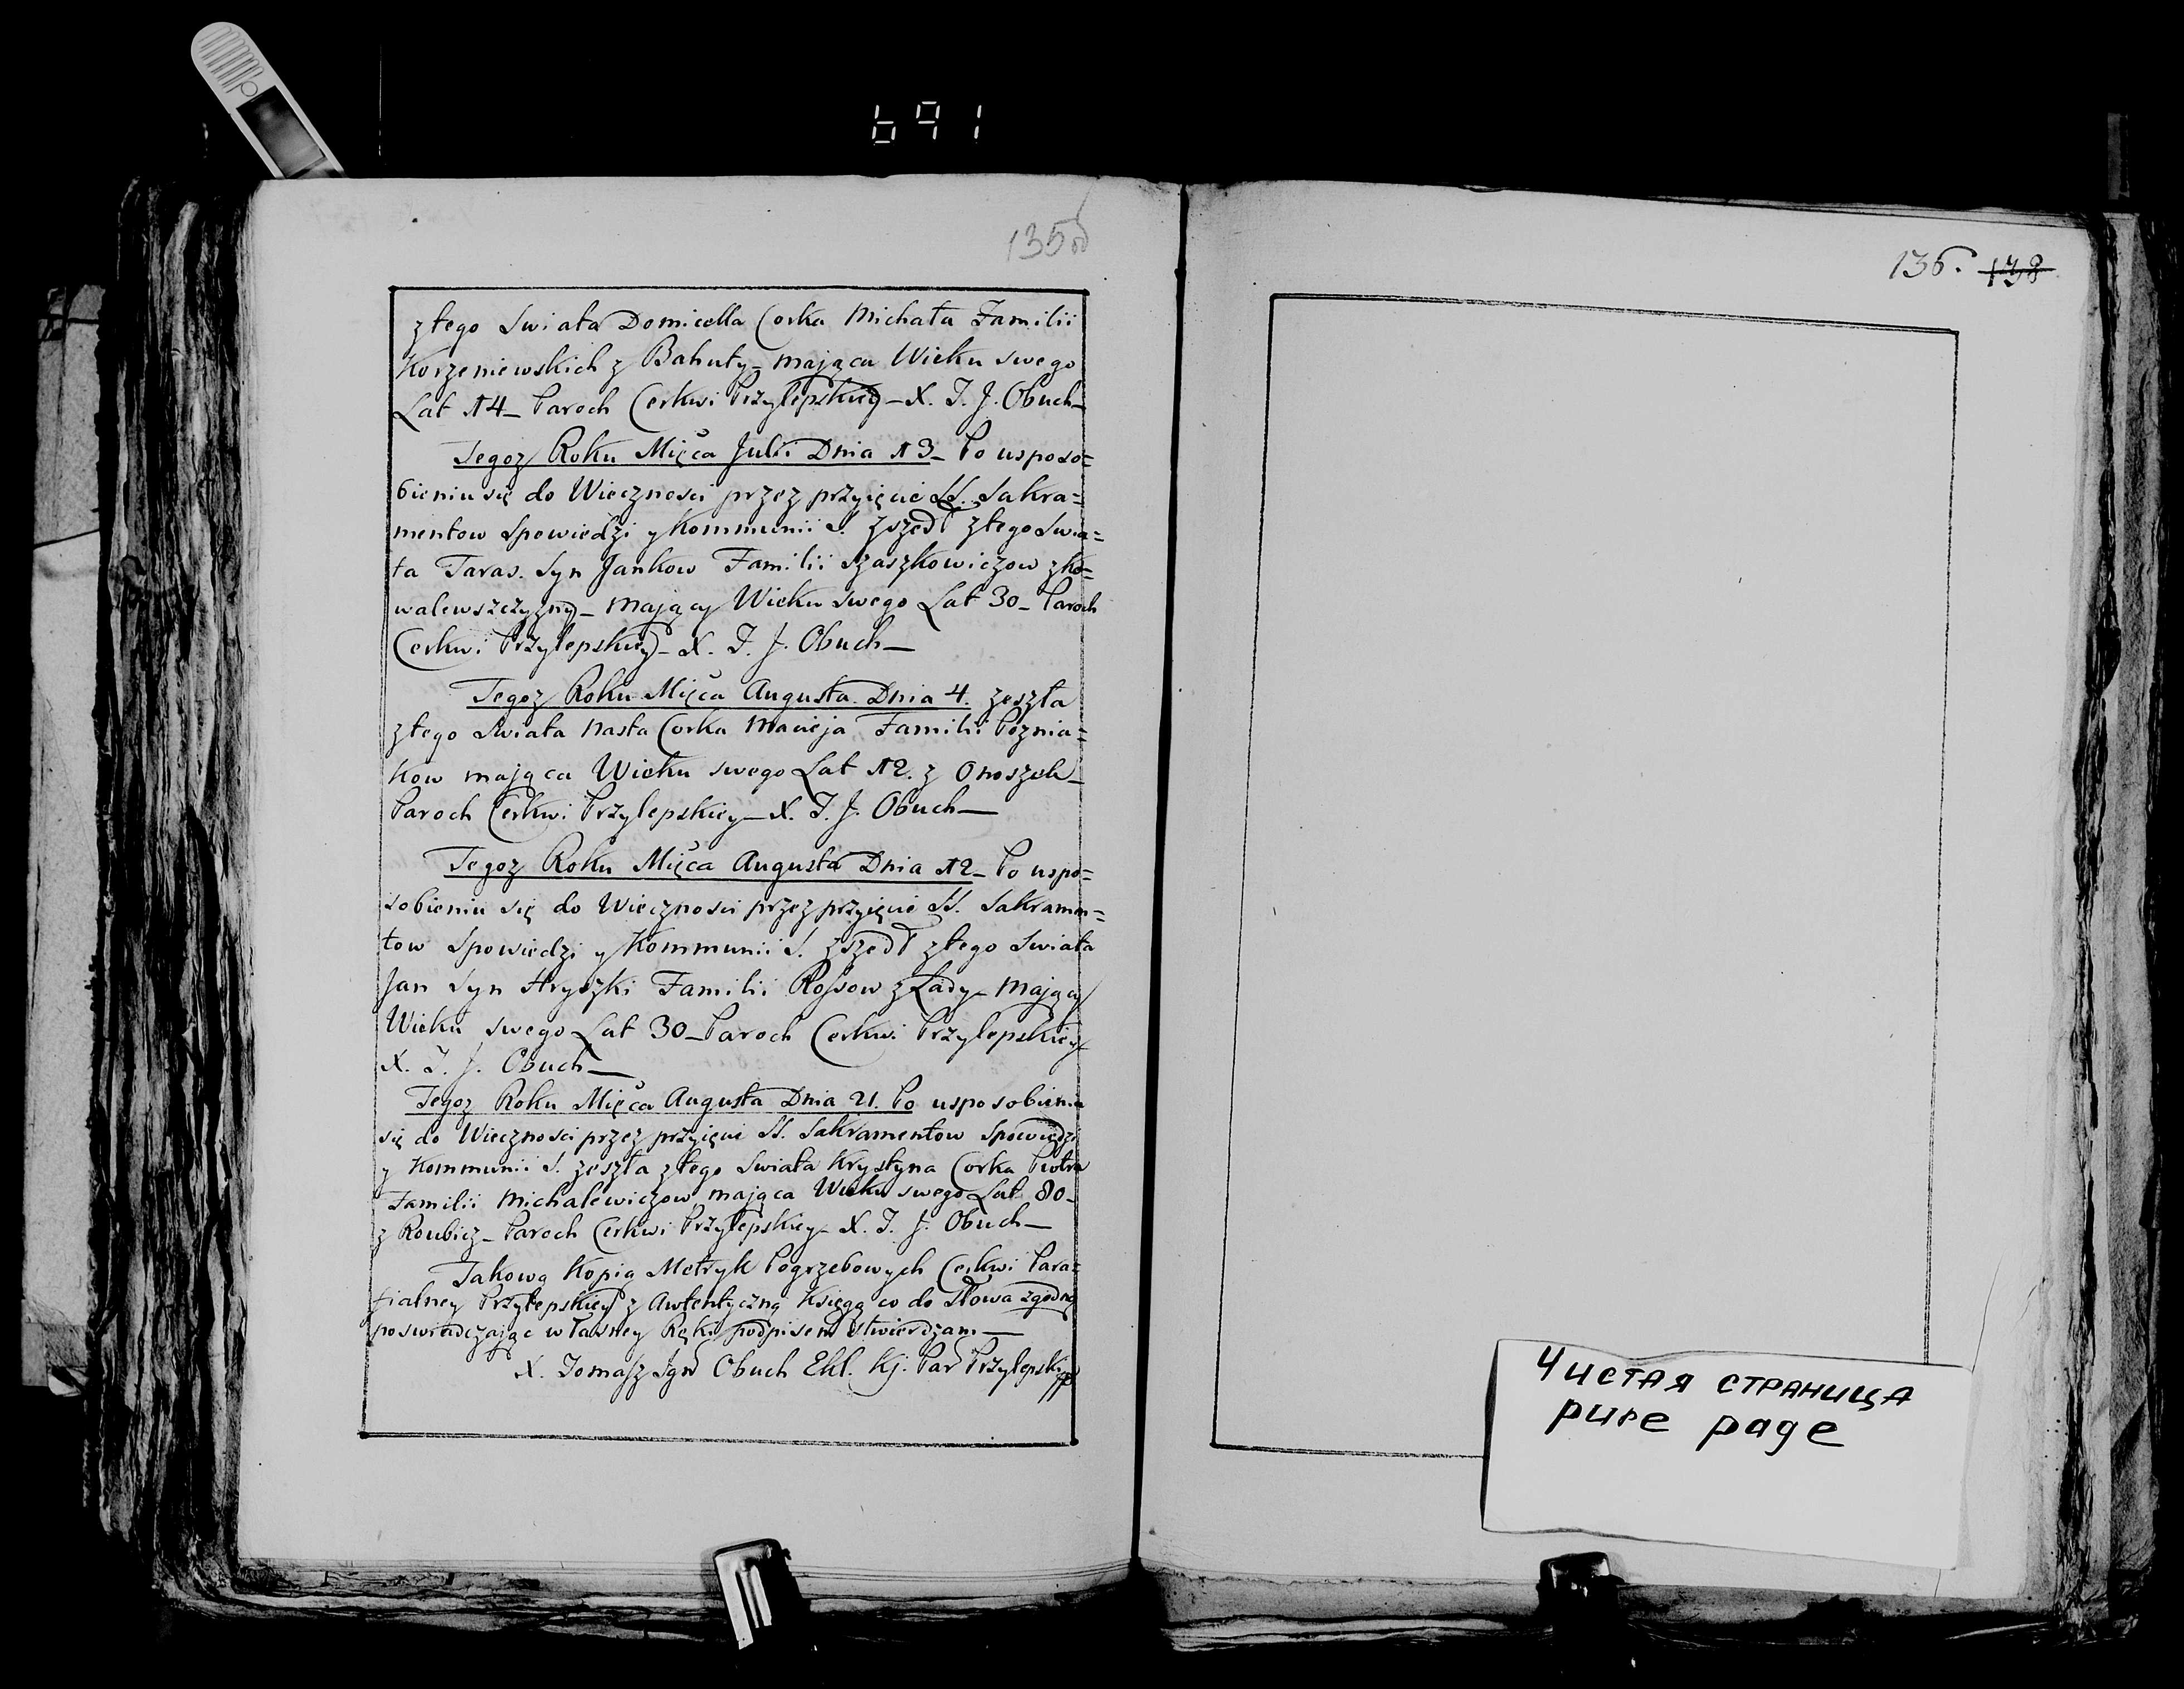 691
135 об
z tego Swiata Domicella Corka Michała Familii
Korzeniewskich z Bahuty_ mająca Wieku swego
Lat 14_ Paroch Cerkwi Przylepskiey_ X. T. J. Obuch_
Tegoz Roku Mięca Julii Dnia 13_ Po usposo=
bieniu się do Wiecznosci przez przyięcie SS. Sakra=
mentow Spowiedzi y Kommunii S. zszedł z tego Swia=
ta Taras. Syn Jankow Familii Szaszkowiczow z Ko=
walewszczyzny_ mający Wieku swego Lat 30_ Paroch
Cerkwi Przylepskiey_ X. T. J. Obuch_
Tegoz Roku Mięca Augusta Dnia 4. zeszła
z tego Swiata Nasta Corka Macieja Familii Poznia=
kow mająca Wieku swego Lat 12. z Onoszek_
Paroch Cerkwi Przylepskiey_ X. T. J. Obuch_
Tegoz Roku Mięca Augusta Dnia 12_ Po uspo=
sobieniu się do Wiecznosci przez przyięcie SS. Sakramen=
tow Spowiedzi y Kommunii S. zszedł z tego Swiata
Jan Syn Hryszki Familii Rossow z Łady_ mający
Wieku swego Lat 30_ Paroch Cerkwi Przylepskiey
X. T. J. Obuch_
Tegoz Roku Mięca Augusta Dnia 21. Po usposobieniu
się do Wiecznosci przez przyięcie SS. Sakramentow Spowiedzi
y Kommunii S. zeszła z tego Swiata Krystyna Corka Piotra
Familii Michalewiczow mająca Wieku swego Lat 80_
z Roubicz_ Paroch Cerkwi Przylepskiey_ X. T. J. Obuch_
Takową Kopią Metryk Pogrzebowych Cerkwi Para=
fialney Przylepskiey z Awtentyczną Księgą co do Słowa zgodną
poswiadczając własney Ręki podpisem stwierdzam_
X. Tomasz Ign Obuch Ekl. Kj. Par Przylepski
136. 138
Чистая страница
pure page